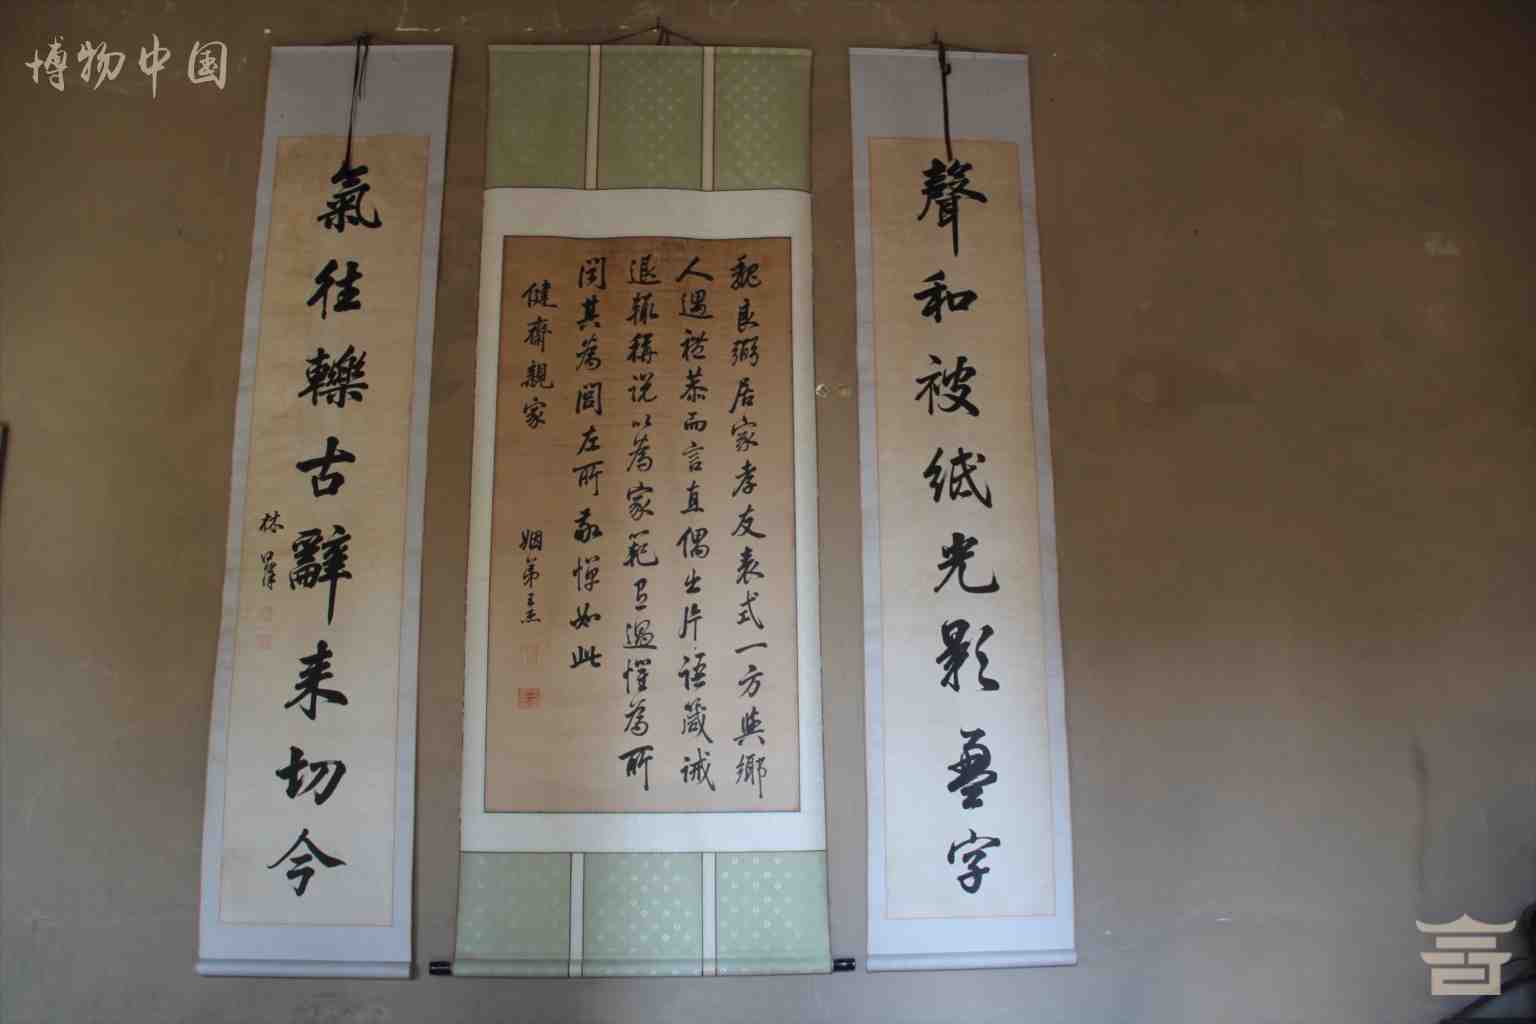 博物中国
聲和被紙光影盈字
魏良弼居家孝友表式一方與鄉
人遇禮恭而言直偶出片語箴誡
退輒稱說以為家範有過惟為所
聞其為閭左所敬憚如此
健齋親家
姻弟王杰
氣往轢古辭来切今
林召棠